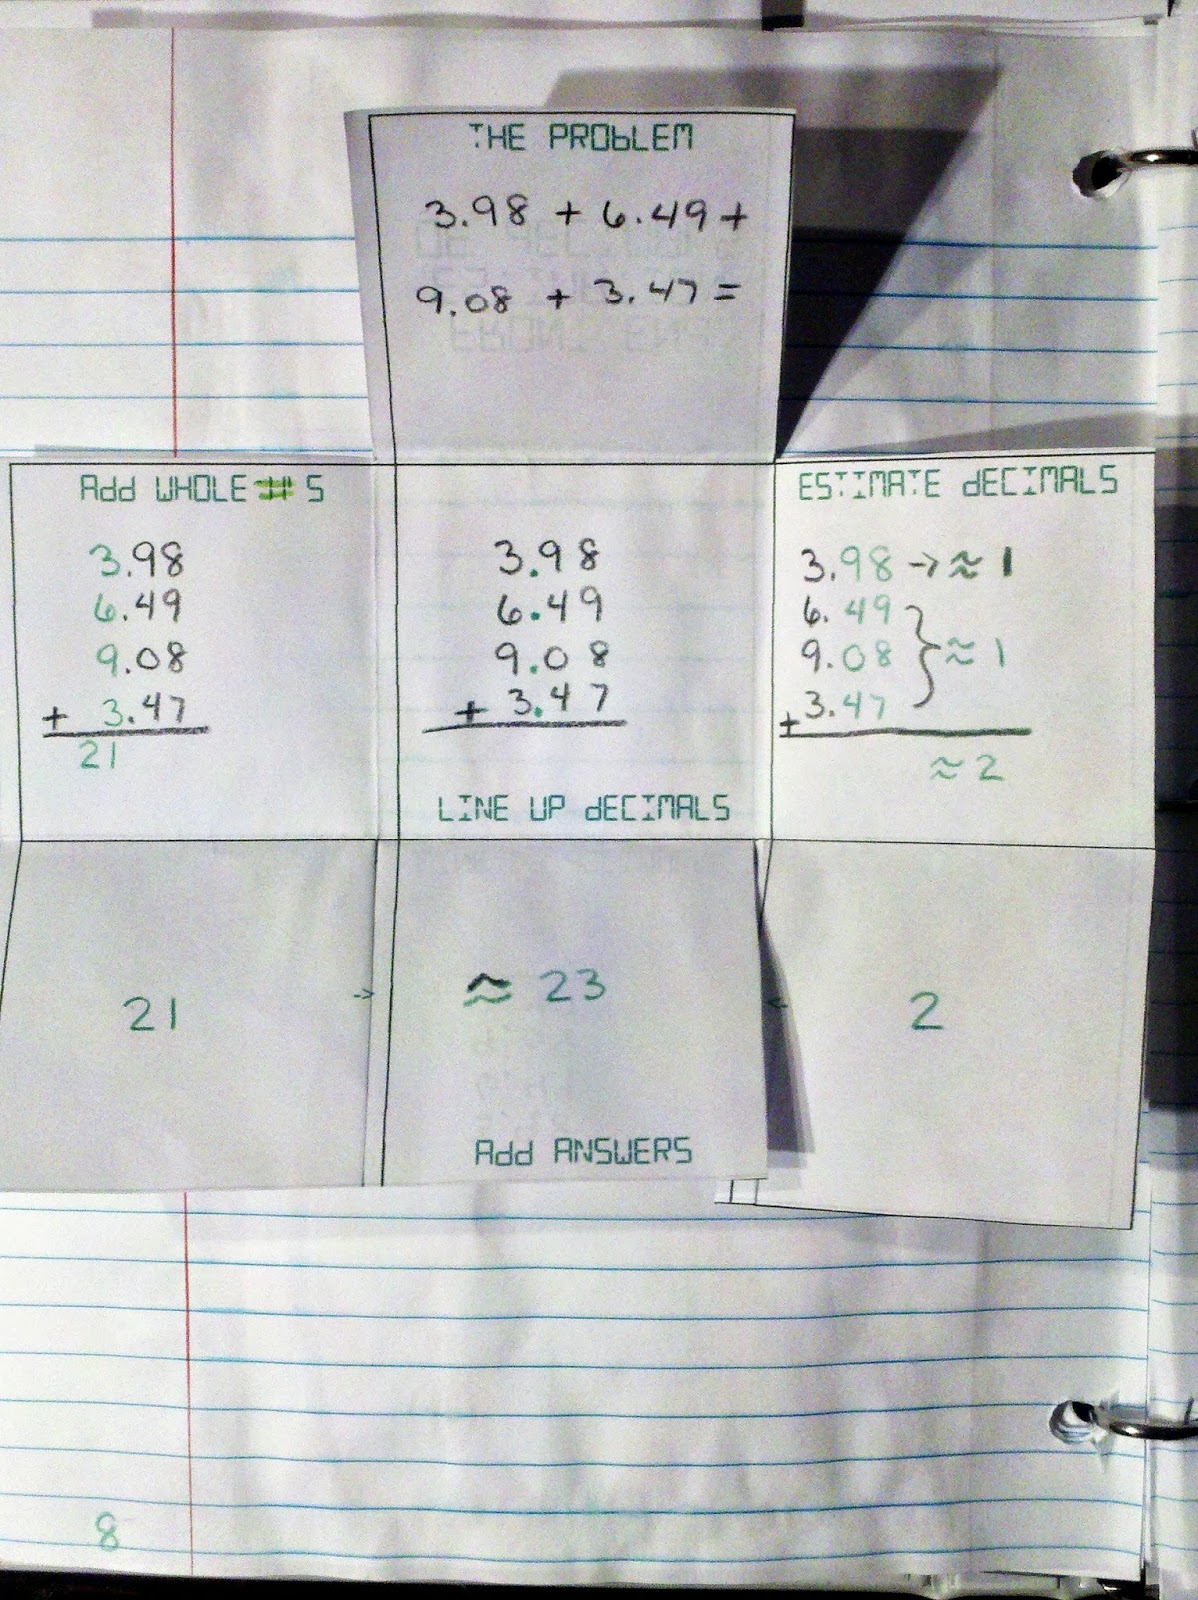 THE PROBLEM
3.98 + 6.49 +
9.08 + 3.47 =
Add WHOLE #S
3.98
6.49
9.08
+ 3.47
21
3.98
6.49
9.08
+ 3.47
LINE UP dECIMALS
ESTIMATE dECIMALS
3.98 → ≈ 1
6.49
9.08 } ≈ 1
+ 3.47
≈ 2
21 ->
≈ 23
Add ANSWERS
<- 2
8